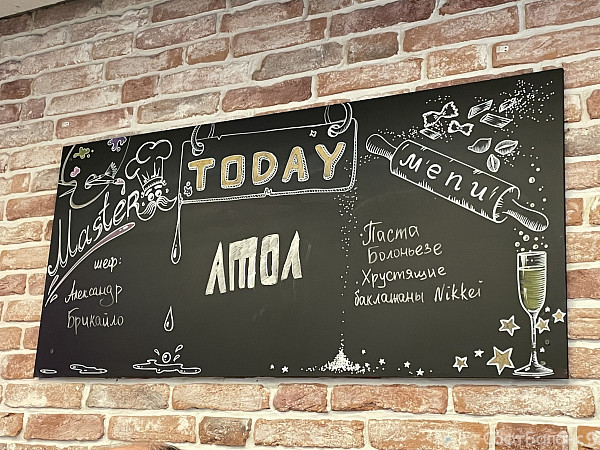 Master
шеф:
Александр
Брикайло
TODAY
АТОЛ
Menu
Паста
Болоньезе
Хрустящие
баклажаны Nikkei